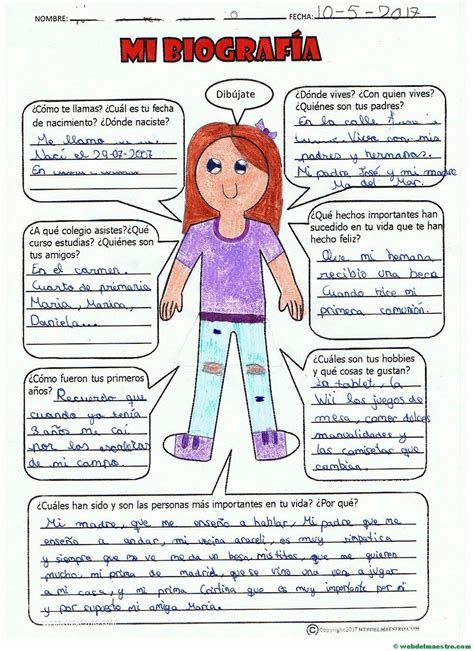 NOMBRE:
FECHA: 10-5-2017
MI BIOGRAFÍA
Dibújate
¿Cómo te llamas? ¿Cuál es tu fecha
de nacimiento? ¿Dónde naciste?
Me llamo
Nací el 29-07-2007
En
¿Dónde vives? ¿Con quien vives?
¿Quiénes son tus padres?
En la calle
Vivo con mis
padres y hermanas.
Mi padre José y mi madre
Ma del Mar.
¿A qué colegio asistes?¿Qué
curso estudias? ¿Quiénes son
tus amigos?
En el carmen.
Cuarto de primaria
Maria, Marina,
Daniela...
¿Qué hechos importantes han
sucedido en tu vida que te han
hecho feliz?
Que mi hemana
recibio una beca
Cuando hice mi
primera comunión.
¿Cómo fueron tus primeros
años?
Recuerdo que
cuando ya tenía
3 años me caí
por las escaleras
de mi campo.
¿Cuáles son tus hobbies
y qué cosas te gustan?
la tablet, la
Wii los juegos de
mesa, comer dulces
manualidades y
las camisetas que
cambian.
¿Cuáles han sido y son las personas más importantes en tu vida? ¿Por qué?
Mi madre, que me enseño a hablar, Mi padre que me
enseño a andar, mi vecina araceli, es muy simpatica
y siempre que me ve me da un beso, Mis titos, que me quieren
mucho, mi prima de madrid, que se vino una vez a jugar
a mi casa, y mi prima Cristina que es muy importante por mi
y por supuesto mi amiga María.
©Copyright 2017 WEBDELMAESTRO.COM
© webdelmaestro.com